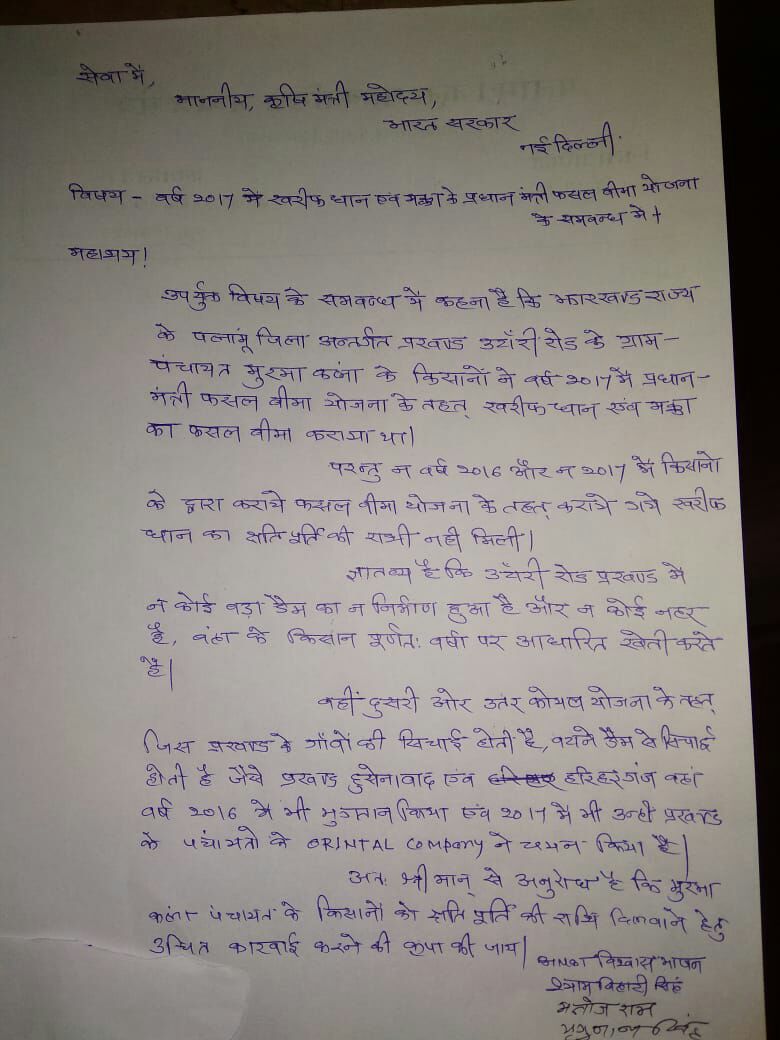 सेवा में,
माननीय, कृषि मंत्री महोदय,
भारत सरकार
नई दिल्ली.
विषय - वर्ष 2017 में खरीफ धान एवं मक्का के प्रधान मंत्री फसल बीमा योजना
के समबन्ध में।
महाशय!
उपर्युक्त विषय के समबन्ध में कहना है कि झारखण्ड राज्य
के पलामू जिला अन्तर्गत प्रखण्ड उटाँरी रोड के ग्राम-
पंचायत मुरमा कला के किसानों ने वर्ष 2017 में प्रधान-
मंत्री फसल बीमा योजना के तहत् खरीफ धान एवं मक्का
का फसल बीमा कराया था।
परन्तु न वर्ष 2016 और न 2017 में किसानो
के द्वारा कराये फसल बीमा योजना के तहत् कराये गये खरीफ
धान का क्षति पूर्ति की राशी नही मिली।
ज्ञातव्य है कि उटाँरी रोड प्रखण्ड में
न कोई बड़ा डैम का न निर्माण हुआ है और न कोई नहर
है, वंहा के किसान पूर्णत: वर्षा पर आधारित खेती करते
है।
वहीं दुसरी ओर उतर कोयल योजना के तहत्
जिस प्रखण्ड के गाँवों की सिचाई होती है, बटाने डैम से सिचाई
होती है जैसे प्रखण्ड हुसेनावाद एवं हरिहरगंज वहां
वर्ष 2016 में भी भुगतान किया एवं 2017 में भी उन्ही प्रखण्ड
के पंचायतो के ORINTAL Company ने चयन किया है।
अत: श्री मान् से अनुरोध है कि मुरमा
कला पंचायत के किसानों को क्षति पूर्ति की राशि दिलवाने हेतु
उचित कारवाई करने की कृपा की जाय।
विश्वास भाजन
श्याम बिहारी सिंह
मनोज राम
सिंह